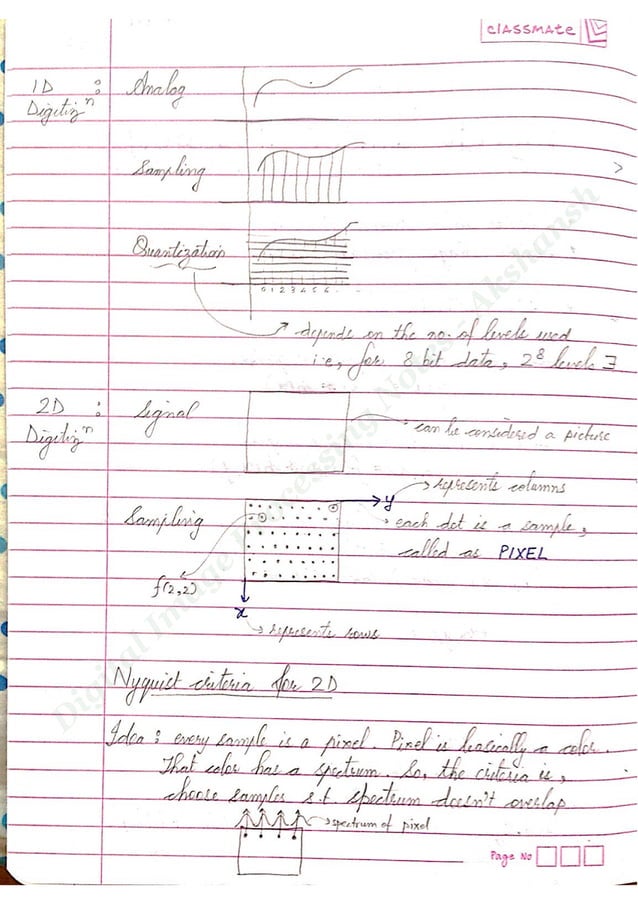 classmate
1D : Analog
Digitizⁿ
Sampling
Quantization
0 1 2 3 4 5 6
depends on the no. of levels used
i.e, for 8 bit data, 2⁸ levels ∃
2D : Signal
Digitizⁿ
can be considered a picture
represents columns
y
Sampling
each dot is a sample,
called as PIXEL
f(2,2)
x
represents rows
Nyquist criteria for 2D
Idea : every sample is a pixel. Pixel is basically a color.
That color has a spectrum. So, the criteria is,
choose samples s.t spectrum doesn't overlap
spectrum of pixel
Page No
Digital Image Processing Notes Akshansh